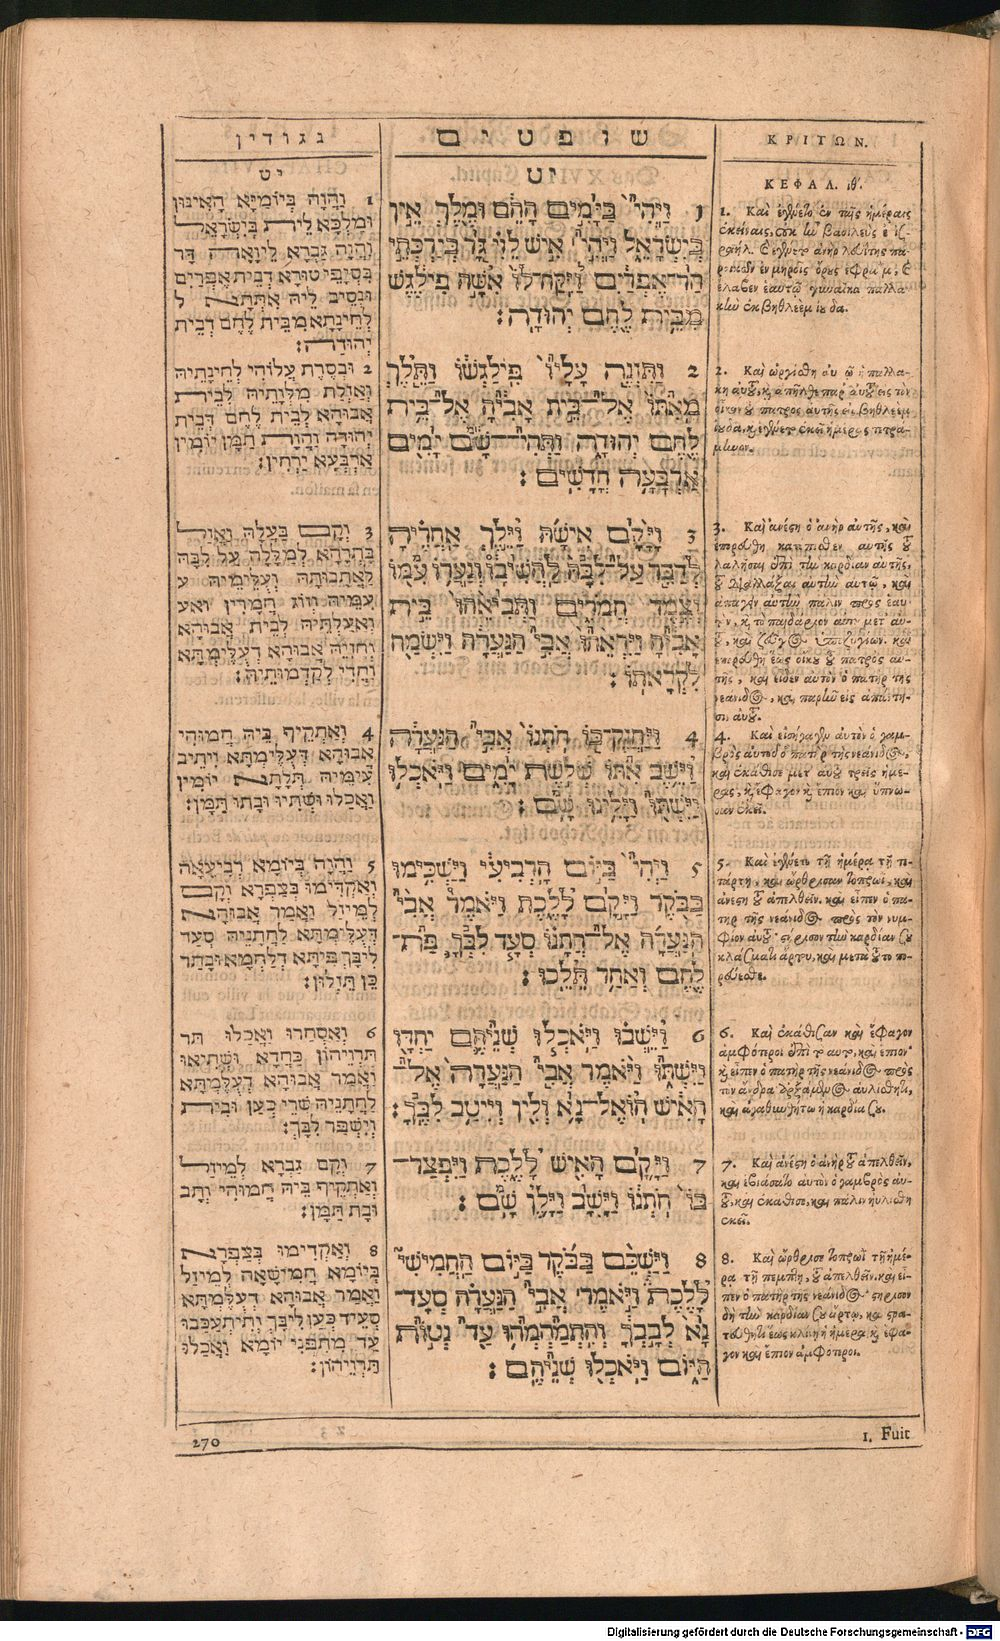 נגודין
יט
1 וַהֲוָה בְּיוֹמַיָּא הָאִינּוּן
וּמַלְכָּא לֵית בְּיִשְׂרָאֵל
וַהֲוָה גַבְרָא לֵיוָאָה דָּר
בִּסְיָפֵי טוּרָא דְּבֵית אֶפְרַיִם
וּנְסֵיב לֵיהּ אִתְּתָא ל
לְחֵינָתָא מִבֵּית לֶחֶם דְּבֵית
יְהוּדָה׃
2 וּבְסָרַת עֲלוֹהִי לְחֵינָתֵיהּ
וַאֲזָלַת מִלְּוָתֵיהּ לְבֵית
אֲבוּהָא לְבֵית לֶחֶם דְּבֵית
יְהוּדָה וַהֲוַת תַּמָּן יוֹמִין
אַרְבְּעָא יַרְחִין׃
3 וְקָם בַּעְלַהּ וַאֲזַל
בַּתְרָהָא לְמַלָּלָא עַל לִבַּהּ
לַאֲתָבוּתַהּ וְעוּלֵימֵיהּ ע
עִמֵּיהּ וְזוֹג חֲמָרִין וּאע
וְאָעַלְתֵּיהּ לְבֵית אֲבוּהָא
וְחַזְיֵהּ אֲבוּהָא דְּעוּלֵימְתָּא
וַחֲדִי לְקַדָּמוּתֵיהּ׃
4 וְאַתְקֵיף בֵּיהּ חֲמוּהִי
אֲבוּהָא דְּעוּלֵימְתָּא וִיתֵיב
עִימֵּיהּ תְּלָתָא יוֹמִין
וַאֲכַלוּ וּשְׁתִיוּ וּבָתוּ תַּמָּן׃
5 וַהֲוָה בְּיוֹמָא רְבִיעָאָה
וְאַקְדִּימוּ בְּצַפְרָא וְקָם
לְמֵיזַל וַאֲמַר אֲבוּהָא
דְּעוּלֵימְתָּא לְחַתְנֵיהּ סְעֵד
לִיבָּךְ פִּיתָּא דְּלַחְמָא וּבָתַר
כֵּן תֵּזְלוּן׃
6 וְאַסְחַרוּ וַאֲכַלוּ תר
תַּרְוֵיהוֹן כַּחֲדָא וּשְׁתִיאוּ
וַאֲמַר אֲבוּהָא דְּעוּלֵימְתָּא
לְחַתְנֵיהּ שְׁרִי כְּעַן וּבִית
וְיִשְׁפַּר לִבָּךְ׃
7 וְקָם גַּבְרָא לְמֵיזַל
וְאַתְקֵיף בֵּיהּ חֲמוּהִי וְתָב
וּבָת תַּמָּן׃
8 וְאַקְדִּימוּ בְּצַפְרָא
בְּיוֹמָא חֲמִישָׁאָה לְמֵיזַל
וַאֲמַר אֲבוּהָא דְּעוּלֵימְתָּא
סְעֵיד כְּעַן לִיבָּךְ וְתִיתְעַכְּבוּ
עַד מִתְפְּנֵי יוֹמָא וַאֲכַלוּ
תַּרְוֵיהוֹן׃
שופטים
יט
1 וַיְהִי בַּיָּמִים הָהֵם וּמֶלֶךְ אֵין
בְּיִשְׂרָאֵל וַיְהִי אִישׁ לֵוִי גָּר בְּיַרְכְּתֵי
הַר־אֶפְרַיִם וַיִּקַּח־לוֹ אִשָּׁה פִילֶגֶשׁ
מִבֵּית לֶחֶם יְהוּדָה׃
2 וַתִּזְנֶה עָלָיו פִּילַגְשׁוֹ וַתֵּלֶךְ
מֵאִתּוֹ אֶל־בֵּית אָבִיהָ אֶל־בֵּית
לֶחֶם יְהוּדָה וַתְּהִי־שָׁם יָמִים
אַרְבָּעָה חֳדָשִׁים׃
3 וַיָּקָם אִישָׁהּ וַיֵּלֶךְ אַחֲרֶיהָ
לְדַבֵּר עַל־לִבָּהּ לַהֲשִׁיבוֹ וְנַעֲרוֹ עִמּוֹ
וְצֶמֶד חֲמֹרִים וַתְּבִיאֵהוּ בֵּית
אָבִיהָ וַיִּרְאֵהוּ אֲבִי הַנַּעֲרָה וַיִּשְׂמַח
לִקְרָאתוֹ׃
4 וַיֶּחֱזַק־בּוֹ חֹתְנוֹ אֲבִי הַנַּעֲרָה
וַיֵּשֶׁב אִתּוֹ שְׁלֹשֶׁת יָמִים וַיֹּאכְלוּ
וַיִּשְׁתּוּ וַיָּלִינוּ שָׁם׃
5 וַיְהִי בַּיּוֹם הָרְבִיעִי וַיַּשְׁכִּימוּ
בַבֹּקֶר וַיָּקָם לָלֶכֶת וַיֹּאמֶר אֲבִי
הַנַּעֲרָה אֶל־חֲתָנוֹ סְעָד לִבְּךָ פַּת־
לֶחֶם וְאַחַר תֵּלֵכוּ׃
6 וַיֵּשְׁבוּ וַיֹּאכְלוּ שְׁנֵיהֶם יַחְדָּו
וַיִּשְׁתּוּ וַיֹּאמֶר אֲבִי הַנַּעֲרָה אֶל־
הָאִישׁ הוֹאֶל־נָא וְלִין וְיִיטַב לִבֶּךָ׃
7 וַיָּקָם הָאִישׁ לָלֶכֶת וַיִּפְצַר־
בּוֹ חֹתְנוֹ וַיָּשָׁב וַיָּלֶן שָׁם׃
8 וַיַּשְׁכֵּם בַּבֹּקֶר בַּיּוֹם הַחֲמִישִׁי
לָלֶכֶת וַיֹּאמֶר אֲבִי הַנַּעֲרָה סְעָד־
נָא לְבָבְךָ וְהִתְמַהְמְהוּ עַד נְטוֹת
הַיּוֹם וַיֹּאכְלוּ שְׁנֵיהֶם׃
ΚΡΙΤΩΝ.
ΚΕΦΑΛ. ιθ'.
1. Καὶ ἐγένετο ἐν ταῖς ἡμέραις
ἐκείναις, οὐκ ἦν βασιλεὺς ἐν ἰσ-
ραήλ. καὶ ἐγένετο ἀνὴρ λευίτης πα-
ροικῶν ἐν μηροῖς ὄρους ἐφραὶμ, καὶ
ἔλαβεν ἑαυτῷ γυναῖκα παλλα-
κὴν ἐκ βηθλεὲμ ἰούδα.
2. Καὶ ὠργίσθη αὐτῷ ἡ παλλα-
κὴ αὐτοῦ, καὶ ἀπῆλθε παρ' αὐτοῦ εἰς τὸν
οἶκον τοῦ πατρὸς αὐτῆς εἰς βηθλεὲμ
ἰούδα, καὶ ἐγένετο ἐκεῖ ἡμέρας τετρα-
μήνου.
3. Καὶ ἀνέστη ὁ ἀνὴρ αὐτῆς, καὶ
ἐπορεύθη κατόπισθεν αὐτῆς τοῦ
λαλῆσαι ἐπὶ τὴν καρδίαν αὐτῆς,
τοῦ διαλλάξαι αὐτὴν αὐτῷ, καὶ
ἀπαγαγεῖν αὐτὴν πάλιν πρὸς ἑαυ-
τὸν, καὶ τὸ παιδάριον αὐτοῦ μετ' αὐ-
τοῦ, καὶ ζεῦγος ὑποζυγίων. καὶ
ἐπορεύθη ἕως οἴκου τοῦ πατρὸς αὐ-
τῆς, καὶ εἶδεν αὐτὸν ὁ πατὴρ τῆς
νεάνιδος, καὶ παρῆν εἰς ἀπάντη-
σιν αὐτοῦ.
4. Καὶ εἰσήγαγεν αὐτὸν ὁ γαμ-
βρὸς αὐτοῦ ὁ πατὴρ τῆς νεάνιδος,
καὶ ἐκάθισε μετ' αὐτοῦ τρεῖς ἡμέ-
ρας, καὶ ἔφαγον καὶ ἔπιον καὶ ὕπνω-
σαν ἐκεῖ.
5. Καὶ ἐγένετο τῇ ἡμέρᾳ τῇ τε-
τάρτῃ, καὶ ὤρθρισαν τοπρωῒ, καὶ
ἀνέστη τοῦ ἀπελθεῖν. καὶ εἶπεν ὁ πα-
τὴρ τῆς νεάνιδος πρὸς τὸν νυμ-
φίον αὐτοῦ· στήρισον τὴν καρδίαν σου
κλάσματι ἄρτου, καὶ μετὰ τοῦτο πο-
ρεύεσθε.
6. Καὶ ἐκάθισαν καὶ ἔφαγον
ἀμφότεροι ἐπὶ τὸ αὐτὸ, καὶ ἔπιον·
καὶ εἶπεν ὁ πατὴρ τῆς νεάνιδος πρὸς
τὸν ἄνδρα ἀρξάμενος αὐλίσθητι,
καὶ ἀγαθυνθήτω ἡ καρδία σου.
7. Καὶ ἀνέστη ὁ ἀνὴρ τοῦ ἀπελθεῖν,
καὶ ἐβιάσατο αὐτὸν ὁ γαμβρὸς αὐ-
τοῦ, καὶ ἐκάθισε, καὶ πάλιν ηὐλίσθη
ἐκεῖ.
8. Καὶ ὤρθρισε τοπρωῒ τῇ ἡμέ-
ρᾳ τῇ πέμπτῃ, τοῦ ἀπελθεῖν. καὶ εἶ-
πεν ὁ πατὴρ τῆς νεάνιδος· στήρισον
δὴ τὴν καρδίαν σου ἄρτῳ, καὶ στρα-
τεύθητι ἕως κλίνῃ ἡ ἡμέρα. καὶ ἔφα-
γον καὶ ἔπιον ἀμφότεροι.
270
1. Fuit
Digitalisierung gefördert durch die Deutsche Forschungsgemeinschaft - DFG